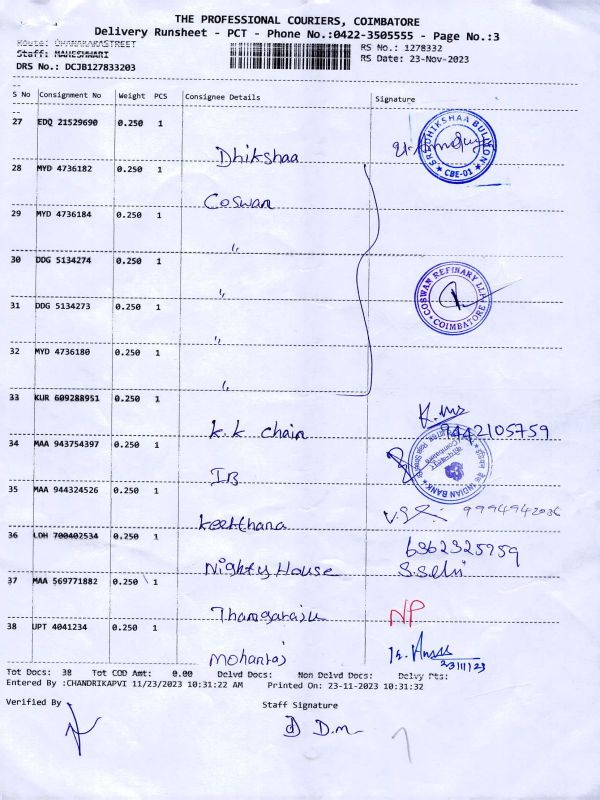 THE PROFESSIONAL COURIERS, COIMBATORE
Delivery Runsheet - PCT - Phone No.:0422-3505555 - Page No.:3
Route: STREET
RS No.: 1278332
Staff: MAHESHWARI
RS Date: 23-Nov-2023
DRS No.: DCJB127833203
S No Consignment No Weight PCS Consignee Details Signature
27 EDQ 21529690 0.250 1
Dhikshaa
SRI DHIKSHAA BULLION
CBE-01
28 MYD 4736182 0.250 1
Coswan
29 MYD 4736184 0.250 1
"
30 DDG 5134274 0.250 1
"
COSWAN REFINARY LLP
COIMBATORE
31 DDG 5134273 0.250 1
"
32 MYD 4736180 0.250 1
"
33 KUR 609288951 0.250 1
K.K chain
9442105759
34 MAA 943754397 0.250 1
IB
INDIAN BANK
35 MAA 944324526 0.250 1
keerthana
9994942036
36 LDH 700402534 0.250 1
Nighty House
6362325759
S.Selvi
37 MAA 569771882 0.250 1
Thangaraju
NP
38 UPT 4041234 0.250 1
Mohanraj
23/11/23
Tot Docs: 38 Tot COD Amt: 0.00 Delvd Docs: Non Delvd Docs: Delvy Pts:
Entered By :CHANDRIKAPVI 11/23/2023 10:31:22 AM Printed On: 23-11-2023 10:31:32
Verified By
Staff Signature
D.M